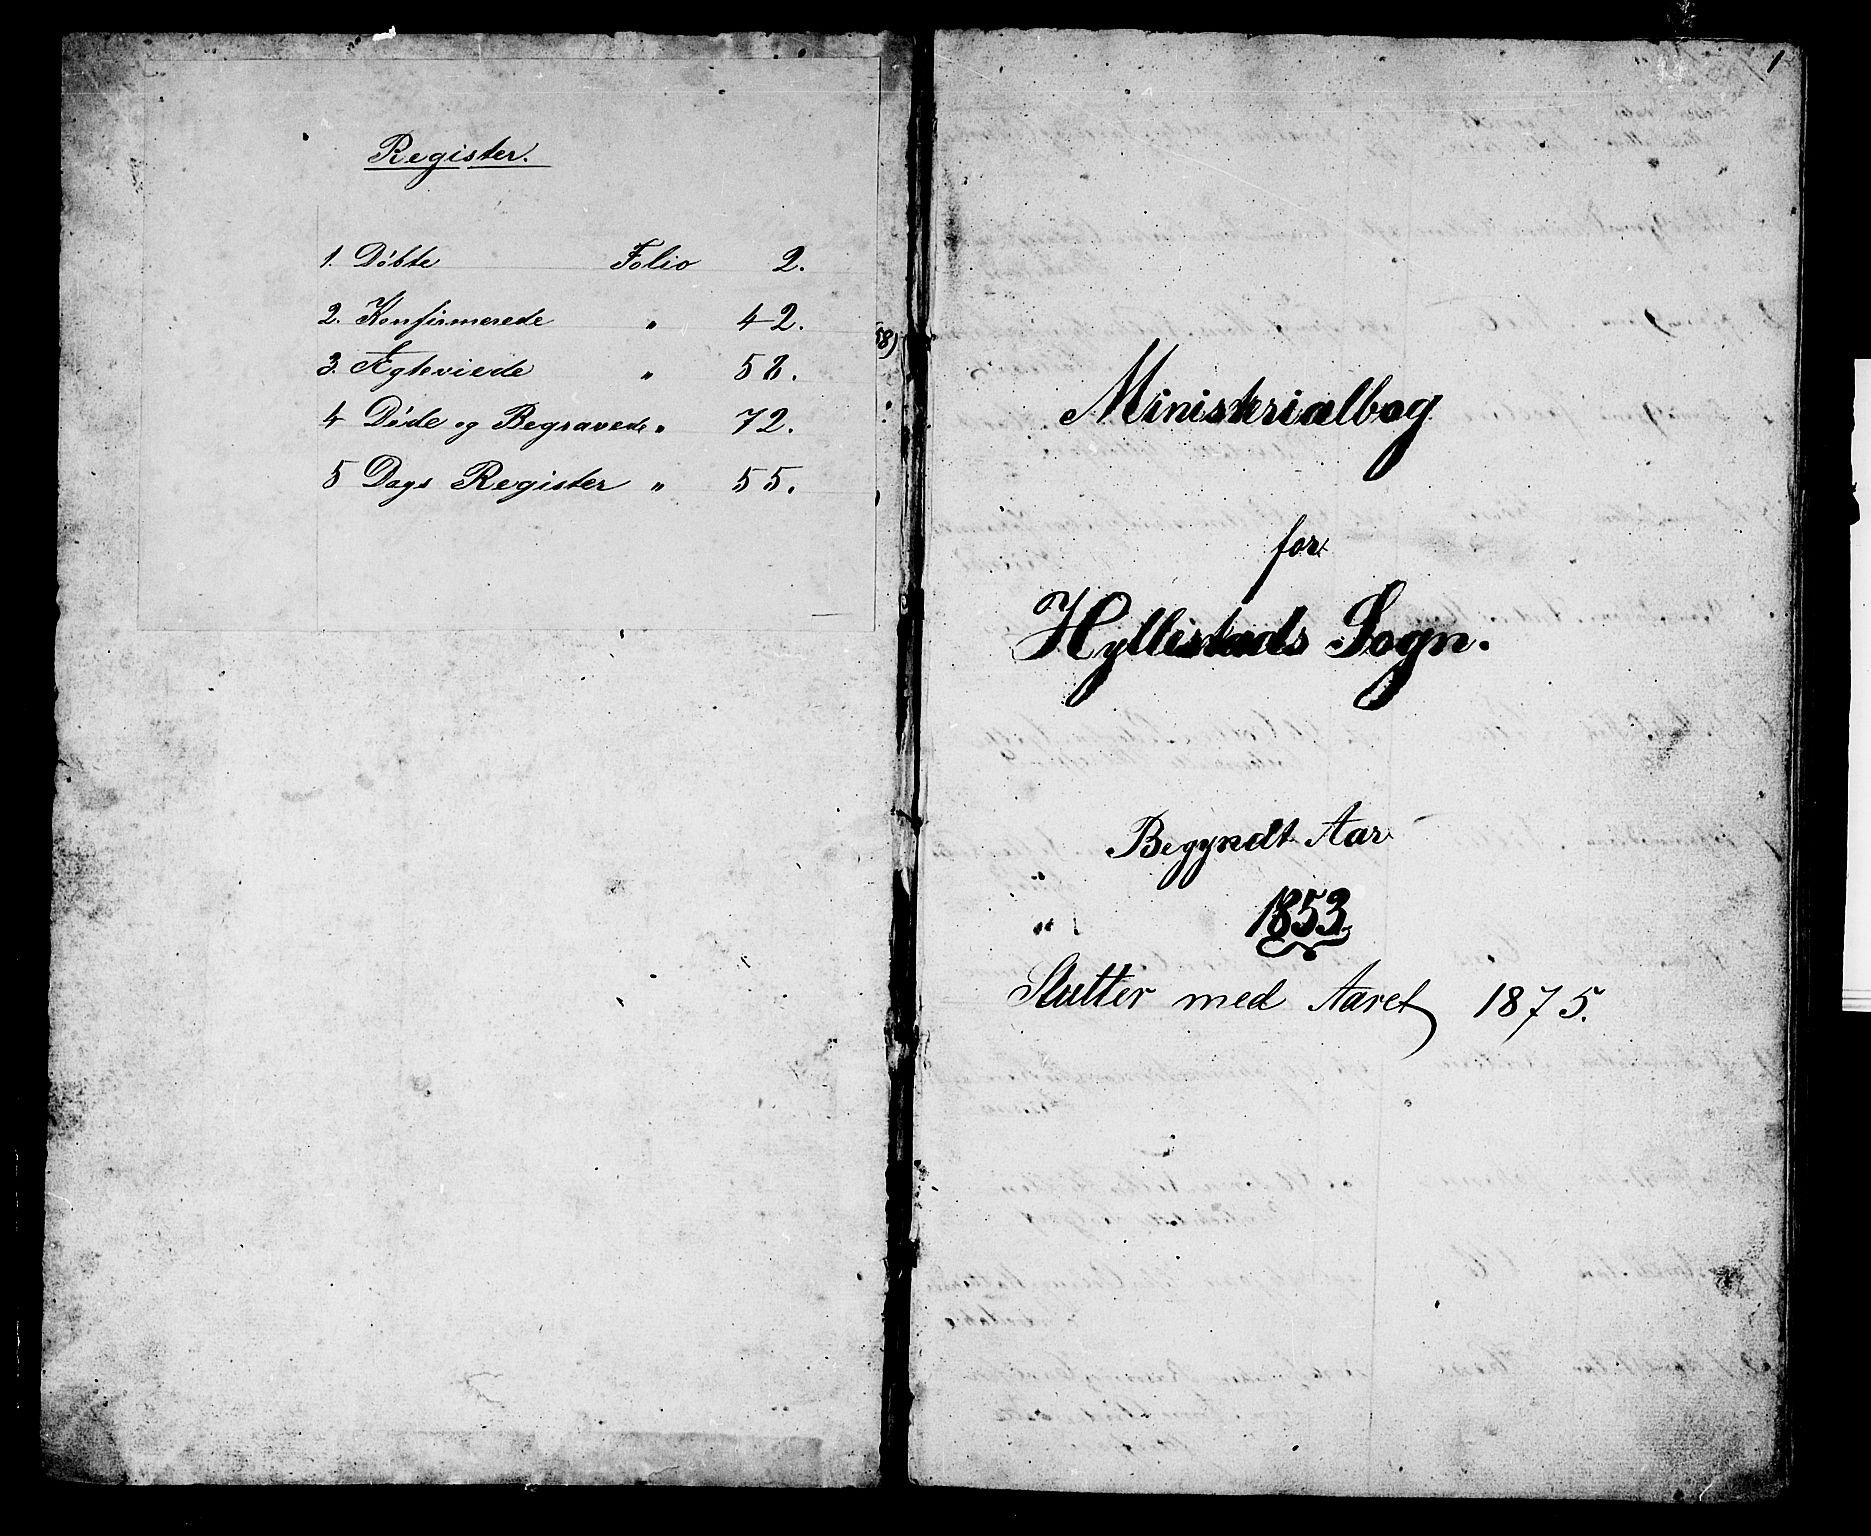 Register.
1. Døbte Folio 2.
2. Konfirmerede " 42.
3. Ægteviede " 58.
4 Døde og Begravede " 72.
5 Dags Register " 55.
58)
1
Ministerialbog
for
Hyllestads Sogn.
Begyndt Aar
" 1853
Slutter med Aaret 1875.